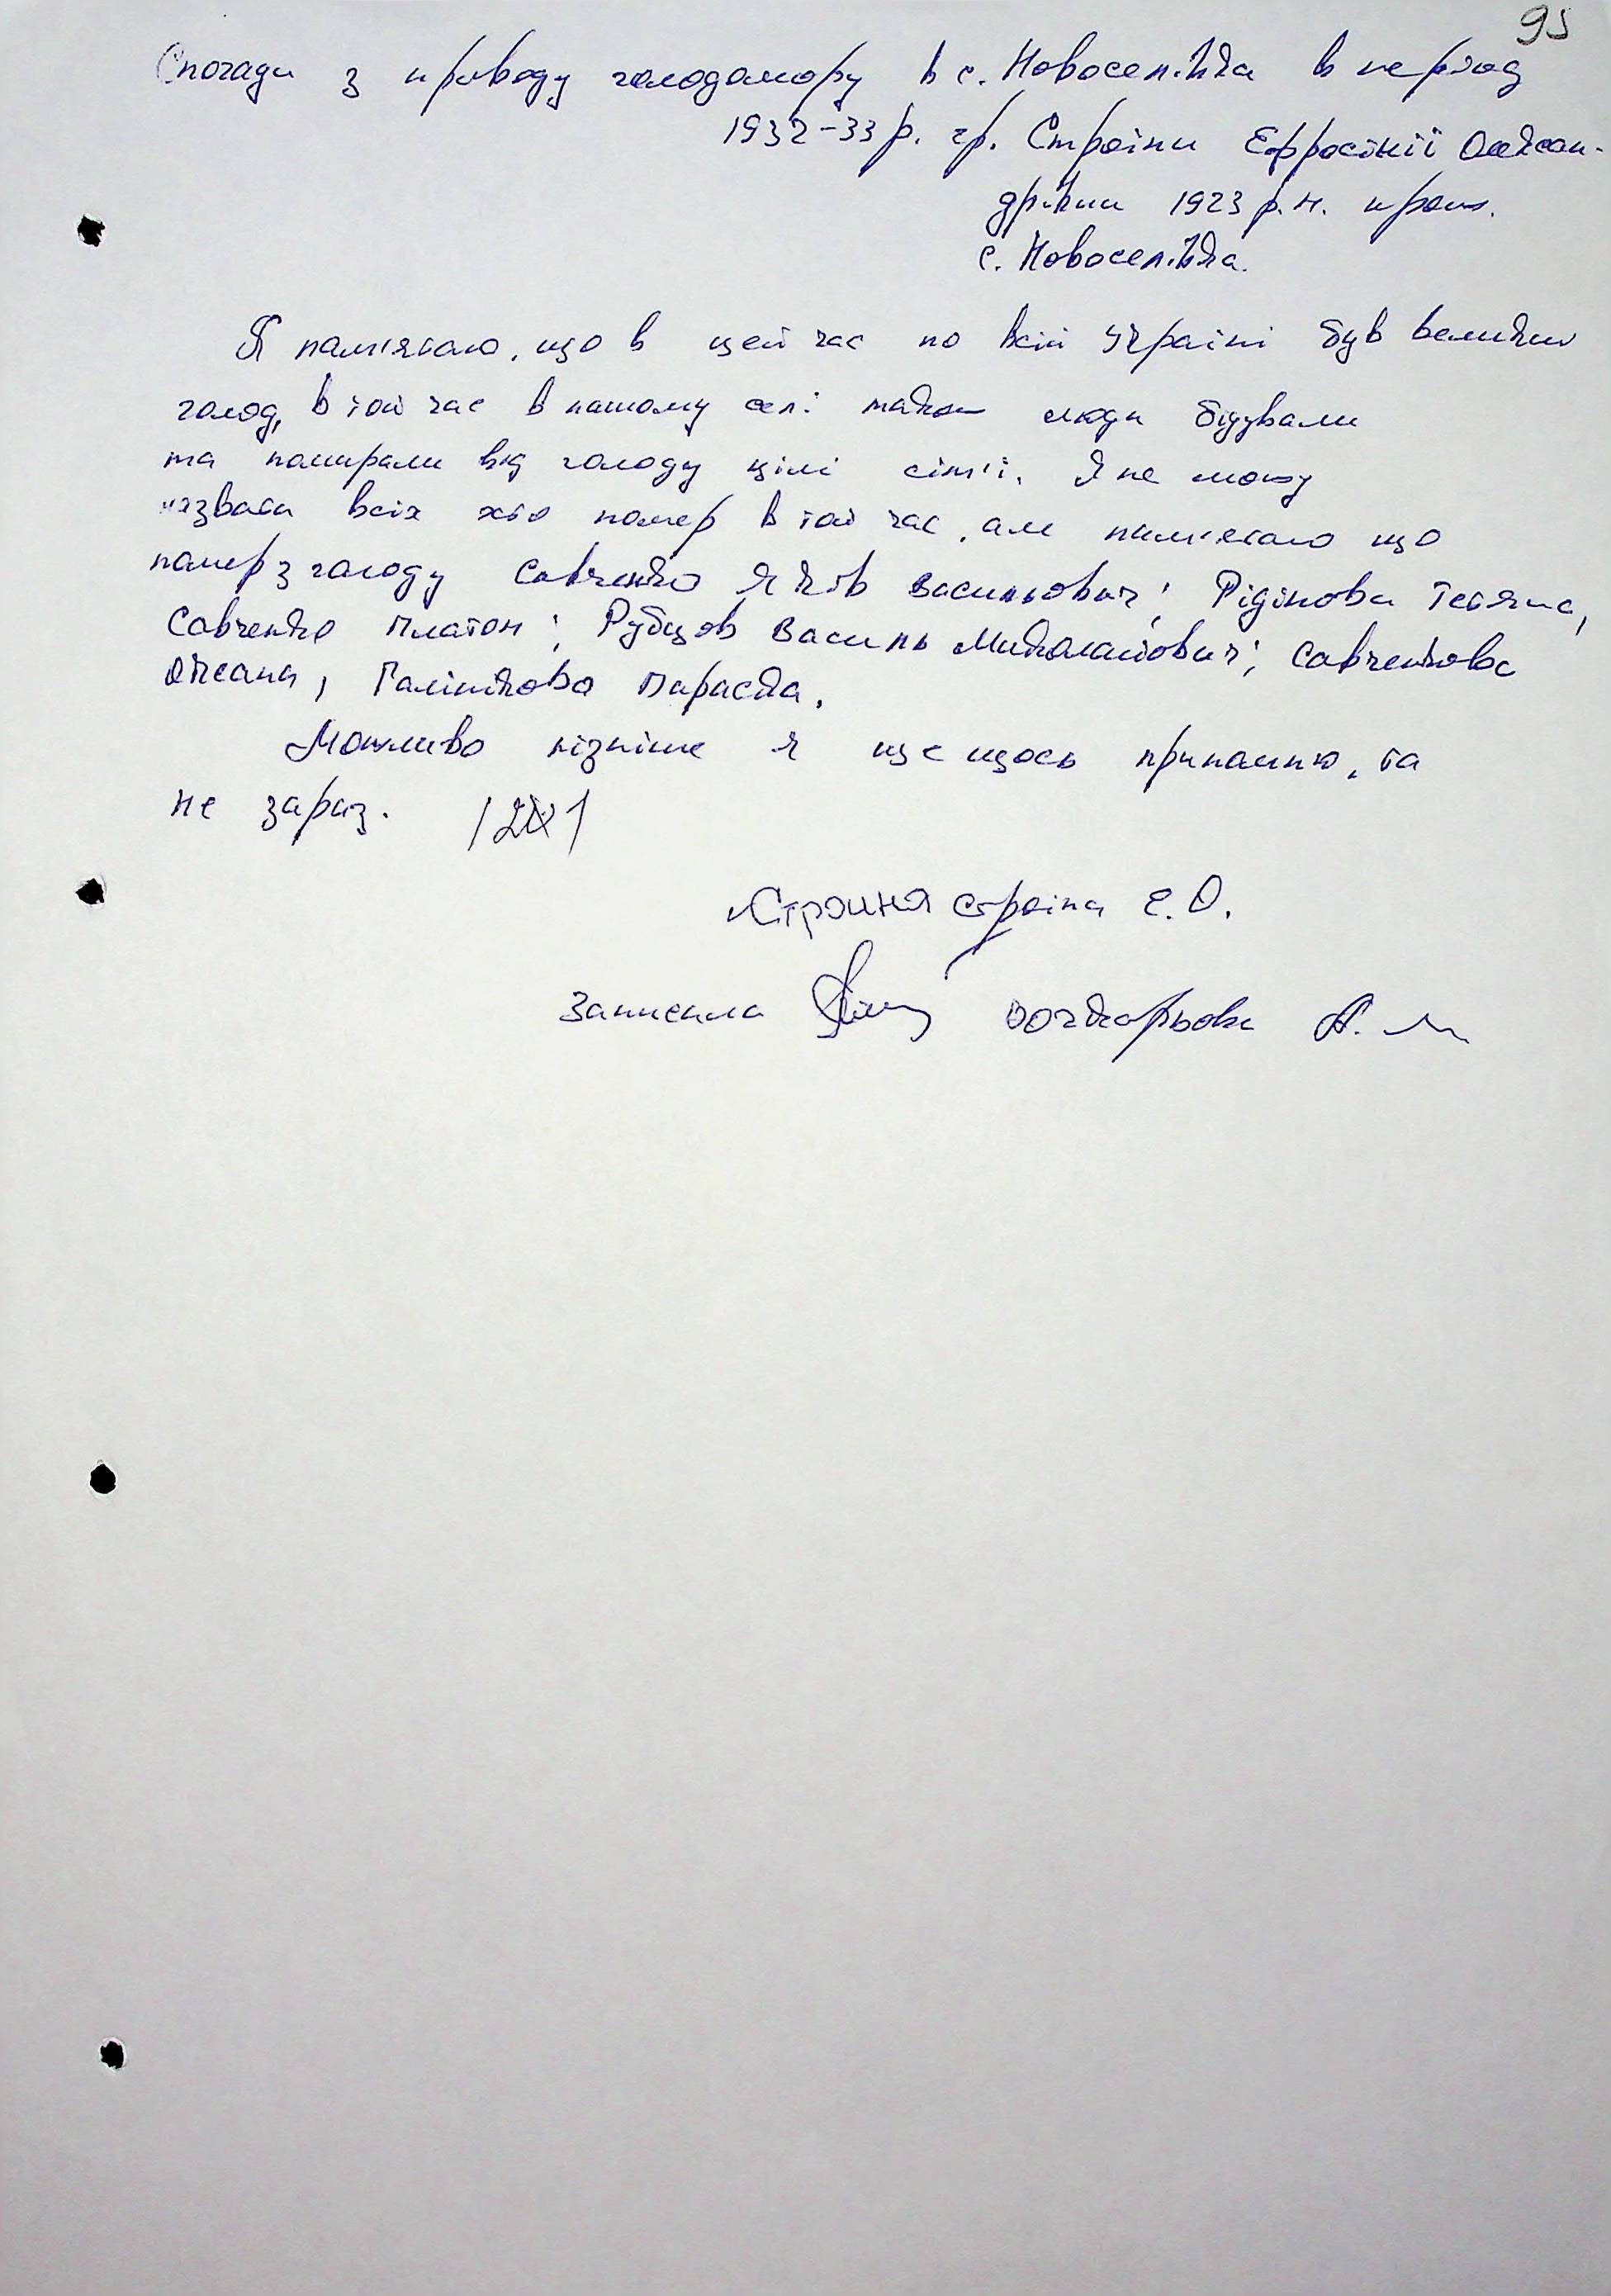 95
Спогади з приводу голодомору в с. Новоселівка в період
1932-33 р. гр. Строіни Ефросінії Олексан-
дрівни 1923 р.н. прож.
с. Новоселівка.
Я пам'ятаю, що в цей час по всій Україні був великий
голод, в той час в нашому селі також люди бідували
та помирали від голоду цілі сім'ї. Я не можу
назвати всіх хто помер в той час, але пам'ятаю що
помер з голоду Савченко Яків Васильович; Рідінова Тетяна,
Савченко Платон; Рубцов Василь Миколайович; Савченкова
Оксана, Галінкова Параска.
Можливо пізніше я ще щось припомню, та
не зараз.
Строиня Строіна Е. О.
Записала А. М